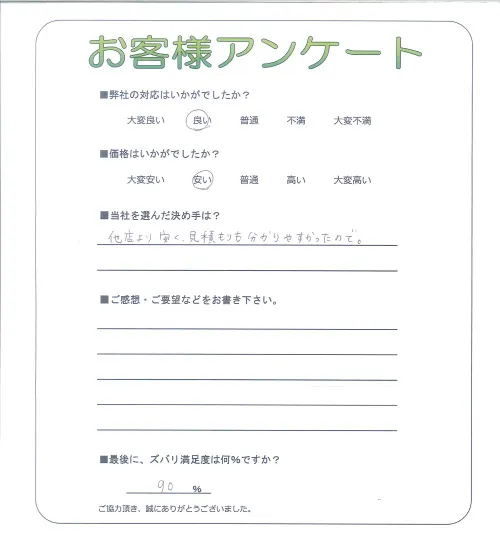 お客様アンケート
■弊社の対応はいかがでしたか？
大変良い 良い 普通 不満 大変不満
■価格はいかがでしたか？
大変安い 安い 普通 高い 大変高い
■当社を選んだ決め手は？
他店より安く、見積もりも分かりやすかったので。
■ご感想・ご要望などをお書き下さい。
■最後に、ズバリ満足度は何％ですか？
90 %
ご協力頂き、誠にありがとうございました。